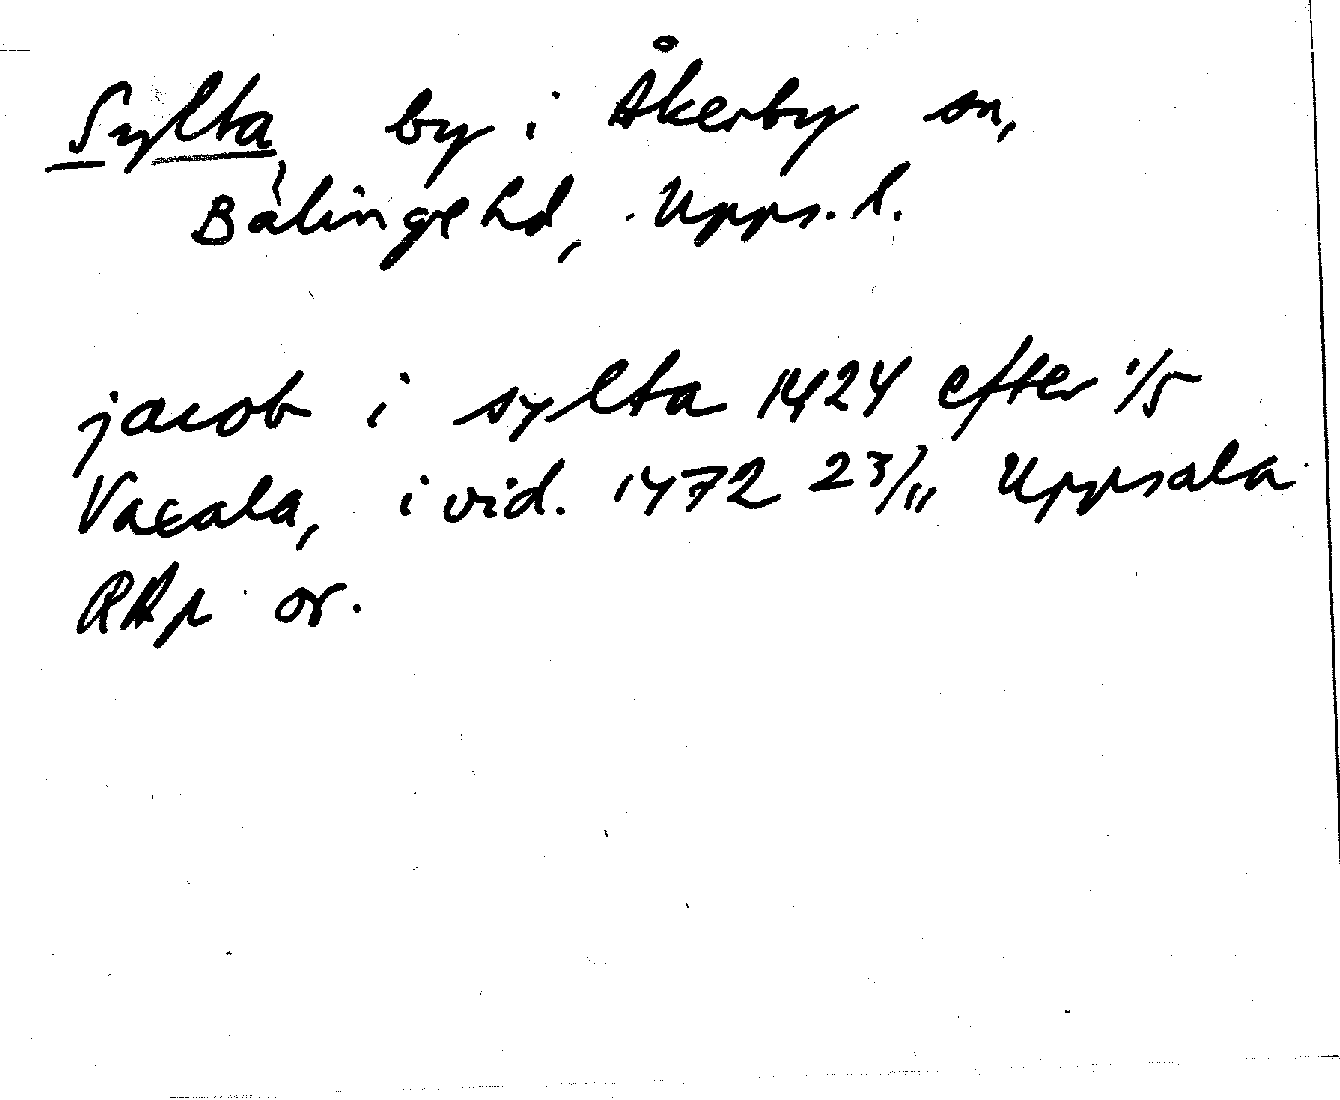 Sylta, by i Åkerby sn,
Bälinge hd, Upps. l.
jacob i sylta 1424 efter 1/5
Vaxala, i vid. 1472 23/11 Uppsala
RAp or.